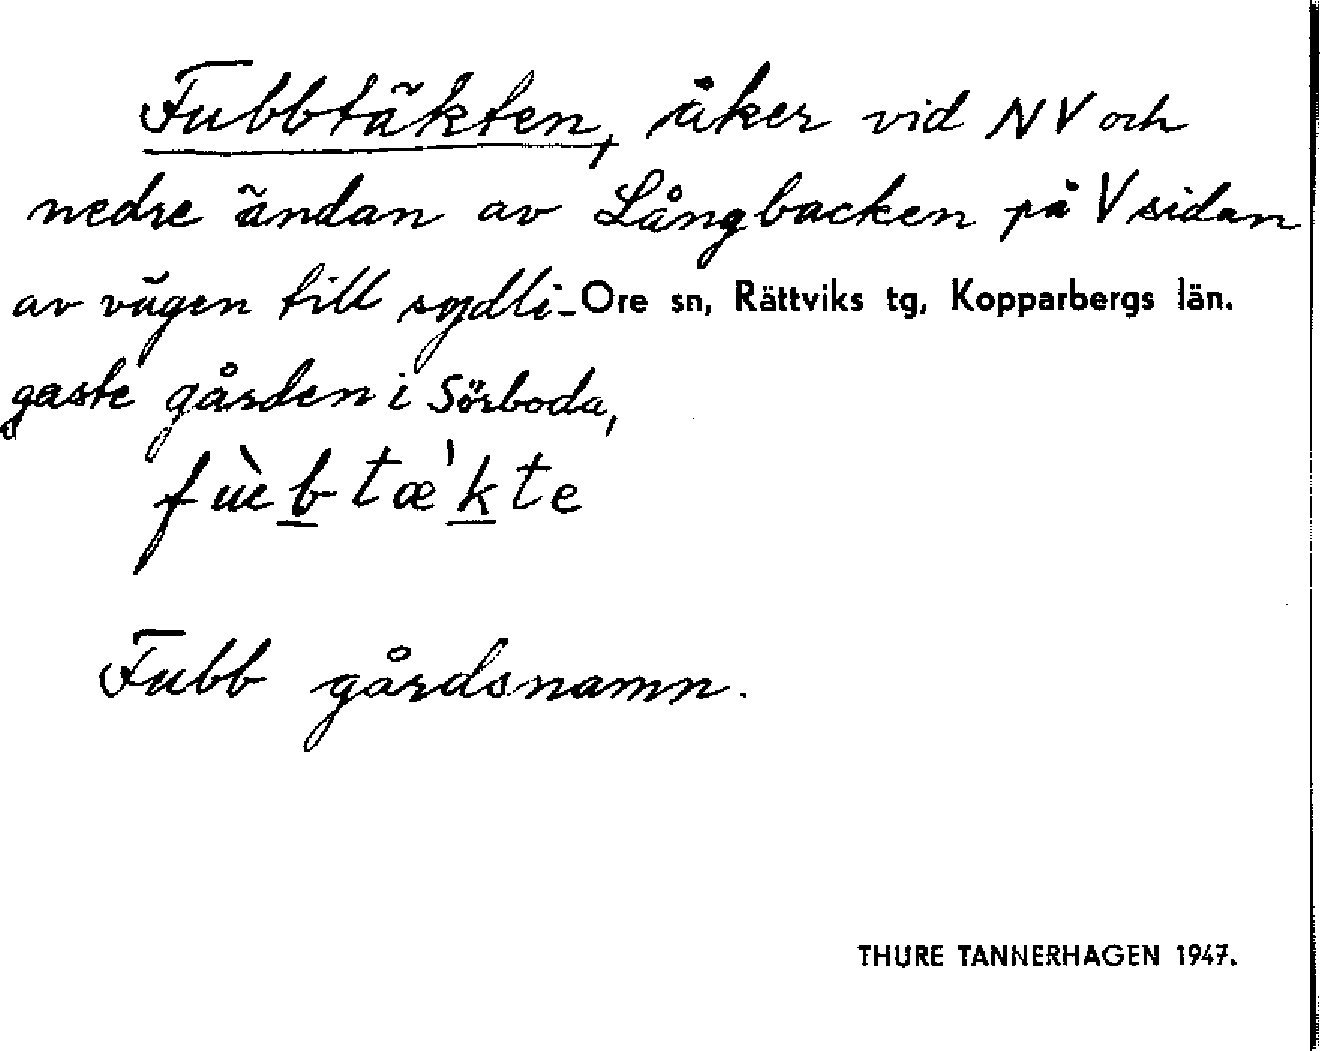 Fubbtäkten, åker vid NV och
nedre ändan av Långbacken på V sidan
av vägen till sydli-
Ore sn, Rättviks tg, Kopparbergs län.
gaste gården i Sörboda,
fùbtæ'kte
Fubb gårdsnamn.
THURE TANNERHAGEN 1947.